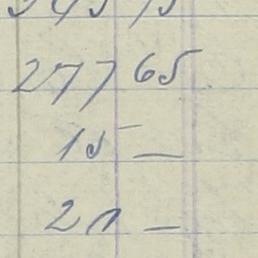 277 65
15 —
21 —